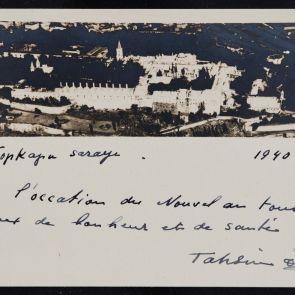 Topkapu sarayı. 1940
l'occation du Nouvel an tous
de bonheur et de santée
Tahsin